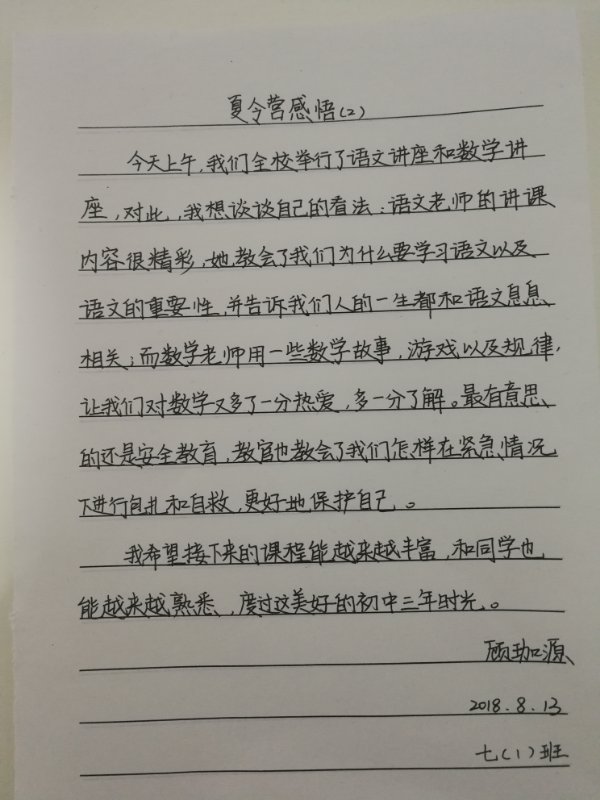 夏令营感悟(2)
今天上午，我们全校举行了语文讲座和数学讲
座，对此，我想谈谈自己的看法：语文老师的讲课
内容很精彩，她教会了我们为什么要学习语文以及
语文的重要性，并告诉我们人的一生都和语文息息
相关；而数学老师用一些数学故事，游戏以及规律，
让我们对数学又多了一分热爱，多一分了解。最有意思
的还是安全教育，教官也教会了我们怎样在紧急情况
下进行包扎和自救，更好地保护自己。
我希望接下来的课程能越来越丰富，和同学也
能越来越熟悉，度过这美好的初中三年时光。
顾珈源
2018.8.13
七(1)班